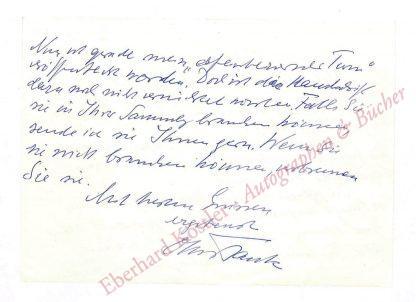 Nun ist gerade mein „elfenbeinerne Turm“
veröffentlicht worden. Doch ist die Handschrift
dazu noch nicht vernichtet worden. Falls Sie
sie in Ihrer Sammlung brauchen können,
sende ich sie Ihnen gern. Wenn Sie
sie nicht brauchen können, verbrennen
Sie sie.
Mit besten Grüssen
ergebenst
Eberhard Köstler - Autographen & Bücher